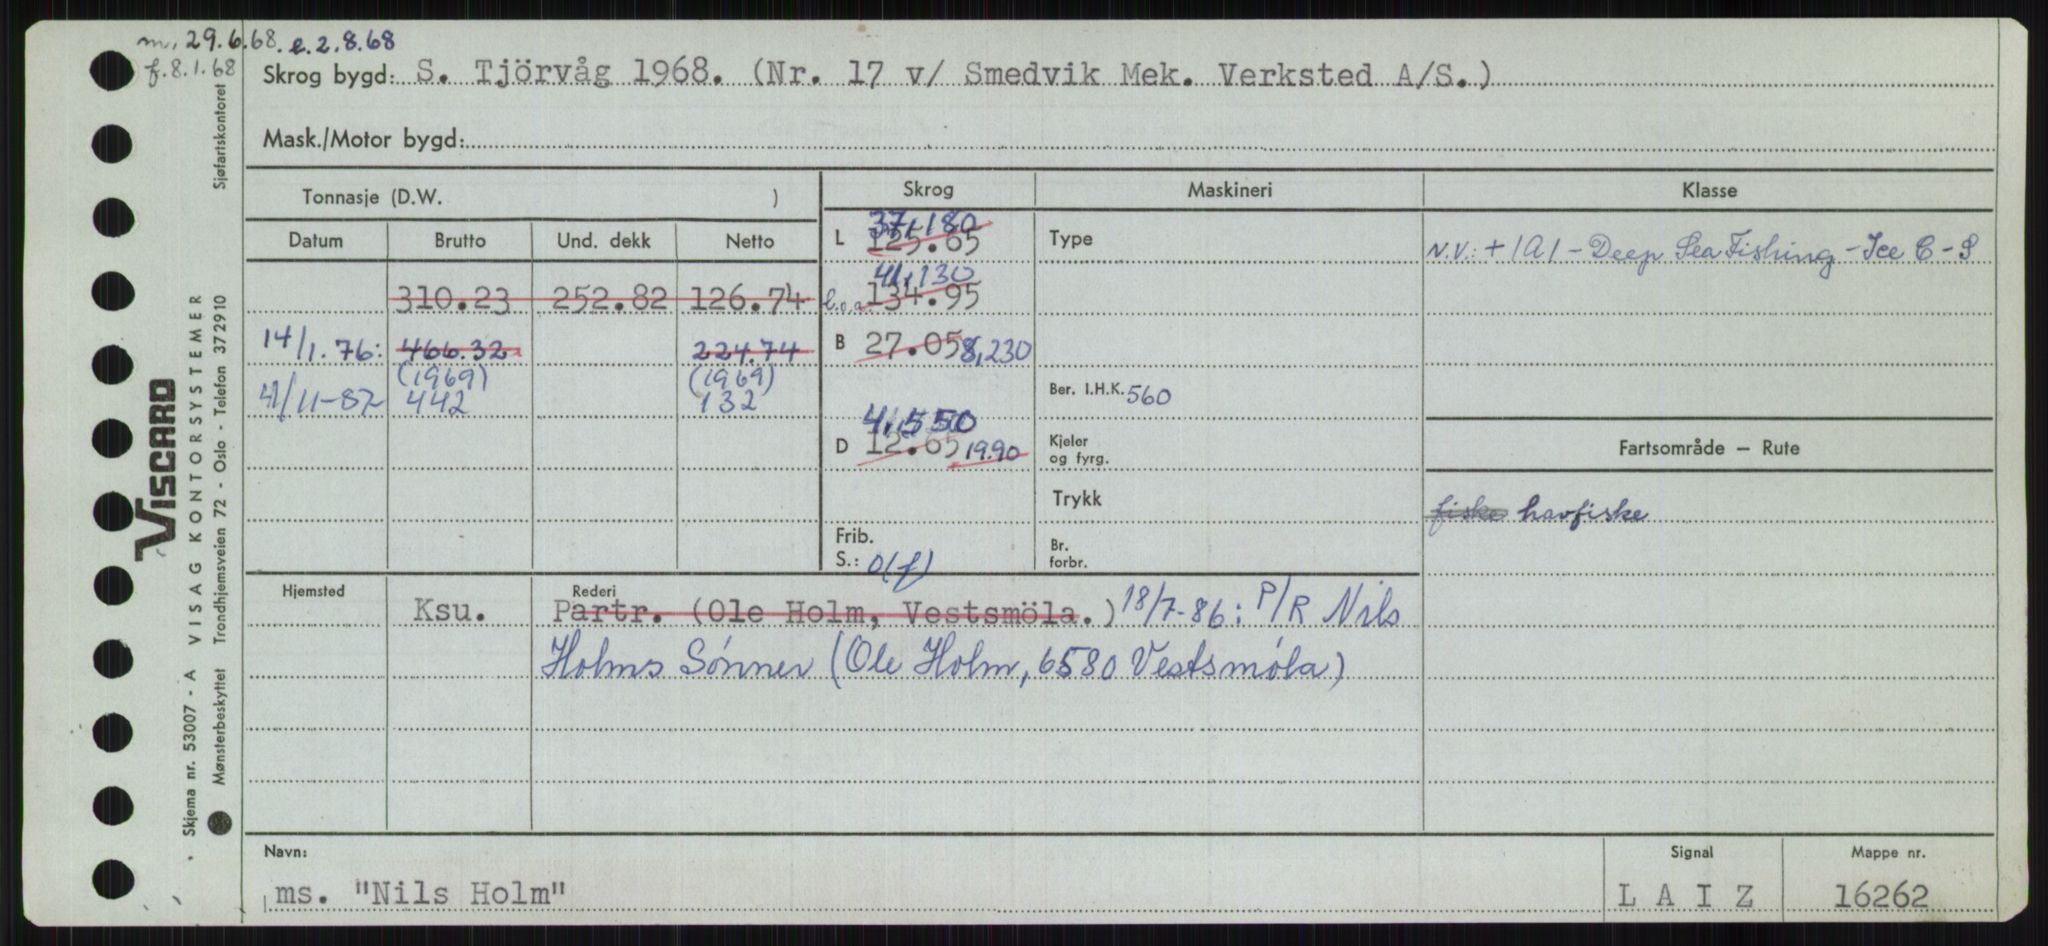 m. 29.6.68. e. 2.8.68
f. 8.1.68
Skrog bygd: S. Tjörvåg 1968. (Nr. 17 v/ Smedvik Mek. Verksted A/S.)
Mask./Motor bygd:
Tonnasje (D.W. )
Skrog
Maskineri
Klasse
Datum Brutto Und. dekk Netto
L 37,180
125.65
Type
N.V.: + 1A1 - Deep Sea Fishing - Ice C - S
41,130
310.23 252.82 126.74
l.o.a. 134.95
14/1.76: 466.32 224.74
B 27.05 8,230
(1969) (1969)
4/11-82 442 132
Ber. I.H.K. 560
4,550
D 12.65 19.90
Kjeler
og fyrg.
Fartsområde — Rute
Trykk
fiske havfiske
Frib.
S.: 0(f)
Br.
forbr.
Hjemsted Rederi
Ksu. Partr. (Ole Holm, Vestsmöla.) 18/7-86: P/R Nils
Holms Sønner (Ole Holm, 6580 Vestsmøla)
Navn:
ms. "Nils Holm"
Signal
L A I Z
Mappe nr.
16262
VISCARD
Skjema nr. 53007 - A VISAG KONTORSYSTEMER
Mønsterbeskyttet Trondhjemsveien 72 - Oslo - Telefon 372910
Sjøfartskontoret